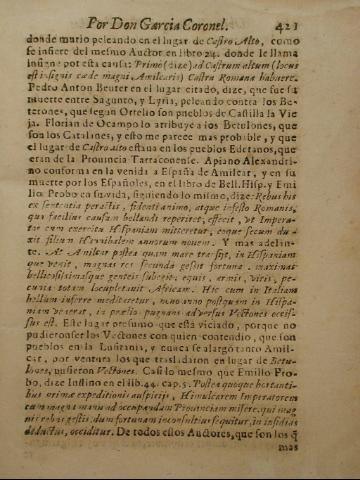 Por Don Garcia Coronel. 421
donde murio peleando en el lugar de Castro Alto, como
se infiere del mesmo Auctor en lib. 24. donde le llama
insigne por esta causa: Primò (dize) ad Castrum altum (locus
est insignis cæde magni Amilcaris) Castra Romana habuere.
Pedro Anton Beuter en el lugar citado, dize, que fue su
muerte entre Sagunto, y Lyria, peleando contra los Be-
terones, que segun Ortelio son pueblos de Castilla la Vie
ja. Florian de Ocampo lo atribuye a los Betulones, que
son los Catalanes, y esto me parece mas probable, y que
el lugar de Castro Alto estaua en los pueblos Edetanos, que
eran de la Prouincia Tarraconense. Apiano Alexandri-
no conforma en la venida a España de Amilcar, y en su
muerte por los Españoles, en el libro de Bell. Hisp. y Emi
lio Probo en su vida, siguiendo lo mismo, dize: Rebus his
ex sententia peractis, fidenti animo, atque infesto Romanis,
quo facilius causam bellandi reperiret, effecit, vt Impera-
tor cum exercitu Hispaniam mitteretur, eoque secum du-
xit filium Hannibalem annorum nouem. Y mas adelan-
te. At Amilcar postea quam mare transijt, in Hispaniam
que venit, magnas res secunda gessit fortuna. maximas
bellicosissimasque gentes subegit: equis, armis, viris, pe-
cunia totam locupletauit Africam. Hic cum in Italiam
bellum inferre meditaretur, nono anno postquam in Hispa-
niam venerat, in prælio pugnans aduersus Vectones occis-
sus est. Este lugar presumo que està viciado, porque no
pudieron ser los Vectones con quien contendio, que son
pueblos en la Lusitania, y nunca se alargò tanto Amil-
car, por ventura los que trasladaron en lugar de Betu-
lones, pusieron Vectones. Casi lo mesmo que Emilio Pro-
bo, dize Iustino en el lib. 44. cap. 5. Postea quoque hortanti-
bus primæ expeditionis auspicijs, Himulcarem Imperatorem
cum magna manu ad occupandam Prouinciam misere. qui mag
nis rebus gestis, dum fortunam inconsultius sequitur, in insidias
deductus, occiditur. De todos estos Auctores, que son los q̃
mas